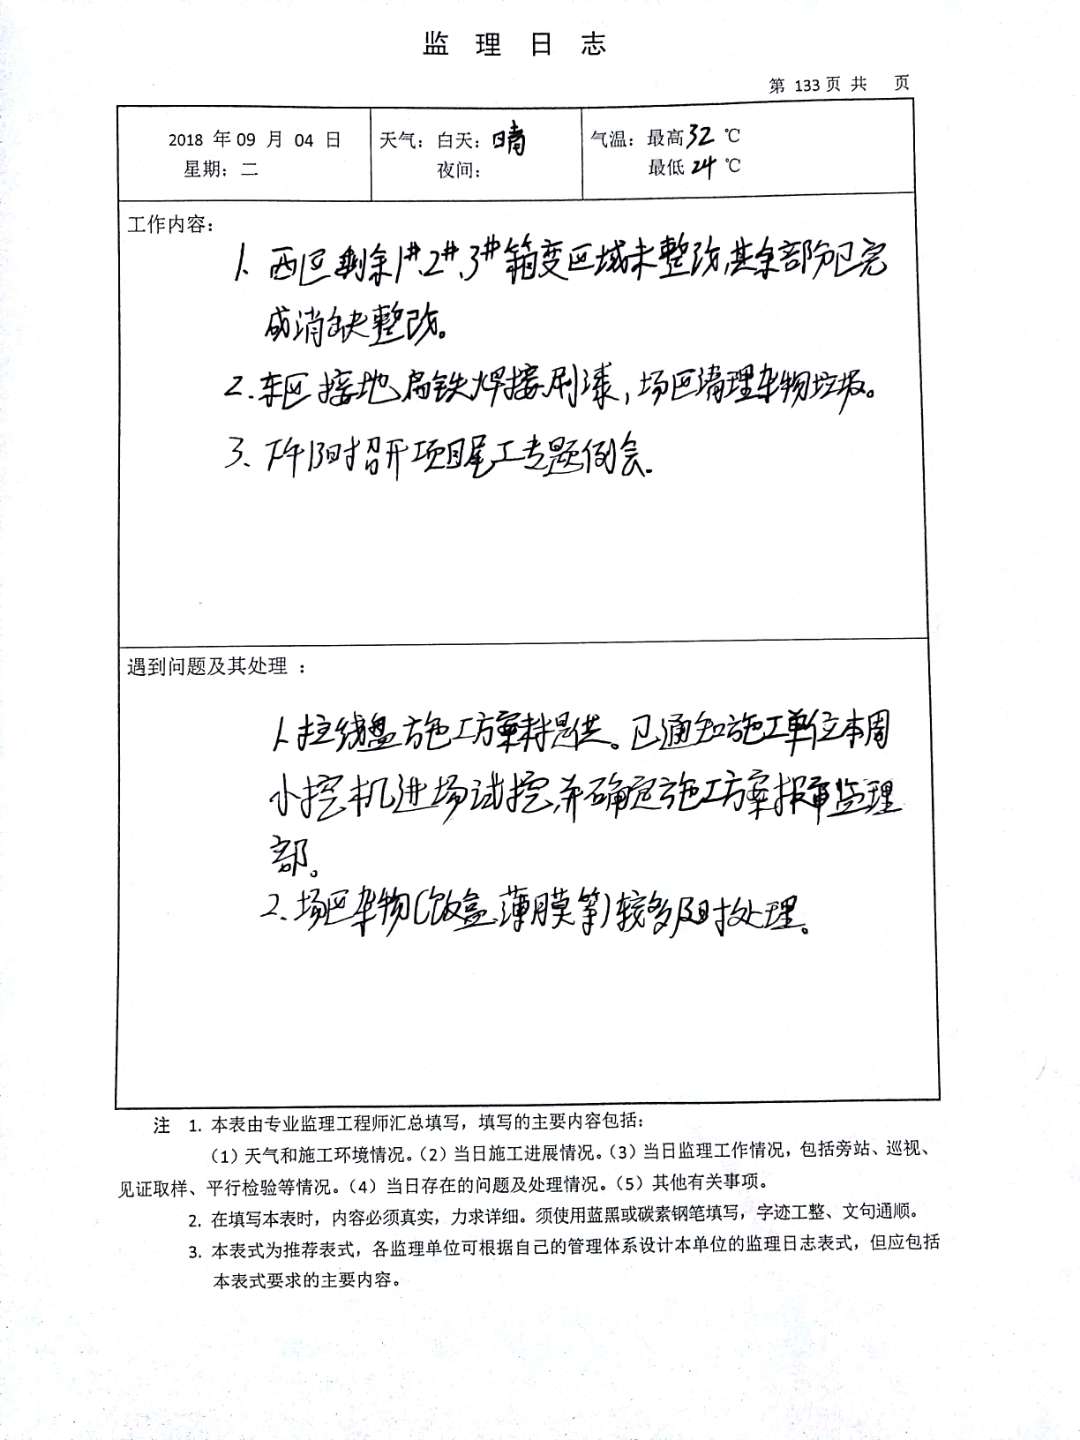 监理日志
第 133 页 共 页
2018 年 09 月 04 日
星期：二
天气：白天：晴
夜间：
气温：最高 32 ℃
最低 24 ℃
工作内容：
1、西区剩余1#、2#、3#箱变区域未整改，其余部分已完
成消缺整改。
2、东区接地扁铁焊接刷漆，场区清理杂物垃圾。
3、下午13时召开项目尾工专题例会.
遇到问题及其处理 ：
1、拉线盘施工方案未提供。已通知施工单位本周
小挖机进场试挖，并确定施工方案报审监理
部。
2、场区杂物（饭盒、薄膜等）较多及时处理。
注 1. 本表由专业监理工程师汇总填写，填写的主要内容包括：
（1）天气和施工环境情况。（2）当日施工进展情况。（3）当日监理工作情况，包括旁站、巡视、
见证取样、平行检验等情况。（4）当日存在的问题及处理情况。（5）其他有关事项。
2. 在填写本表时，内容必须真实，力求详细。须使用蓝黑或碳素钢笔填写，字迹工整、文句通顺。
3. 本表式为推荐表式，各监理单位可根据自己的管理体系设计本单位的监理日志表式，但应包括
本表式要求的主要内容。